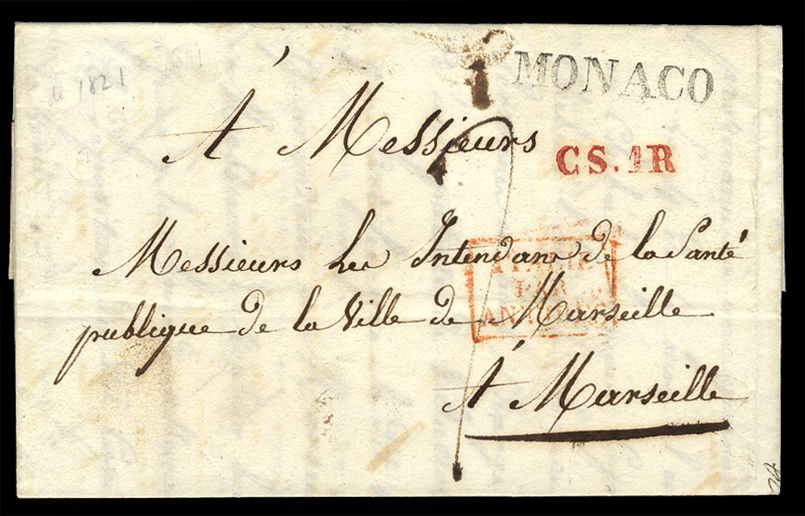 1821
MONACO
À Messieurs
CS.1R
Messieurs les Intendans de la Santé
PAR
ANTIBES
publique de la Ville de Marseille
À Marseille